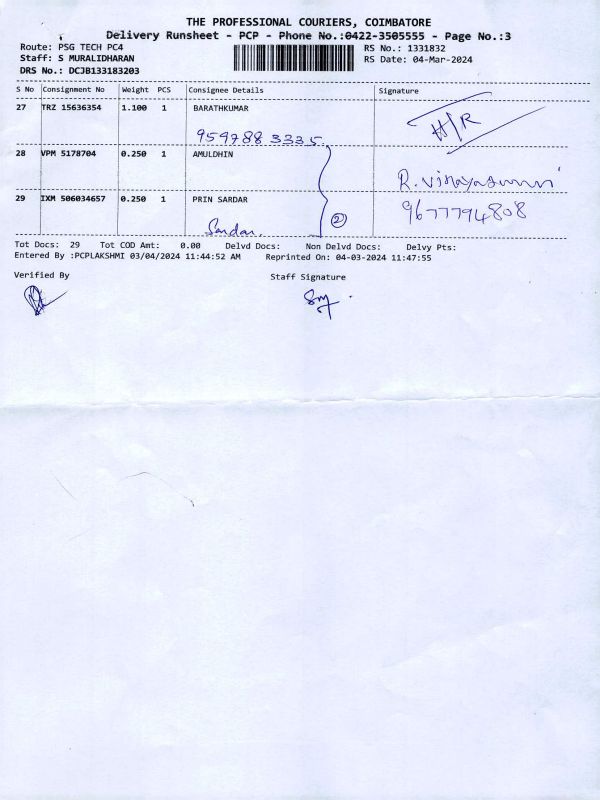 THE PROFESSIONAL COURIERS, COIMBATORE
Delivery Runsheet - PCP - Phone No.:0422-3505555 - Page No.:3
Route: PSG TECH PC4
RS No.: 1331832
Staff: S MURALIDHARAN
RS Date: 04-Mar-2024
DRS No.: DCJB133183203
S No Consignment No Weight PCS Consignee Details Signature
27 TRZ 15636354 1.100 1 BARATHKUMAR
H/R
9597883335
28 VPM 5178704 0.250 1 AMULDHIN
R. Vijayakumari
29 IXM 506034657 0.250 1 PRIN SARDAR
9677794808
Sardar
2
Tot Docs: 29 Tot COD Amt: 0.00 Delvd Docs: Non Delvd Docs: Delvy Pts:
Entered By :PCPLAKSHMI 03/04/2024 11:44:52 AM Reprinted On: 04-03-2024 11:47:55
Verified By Staff Signature